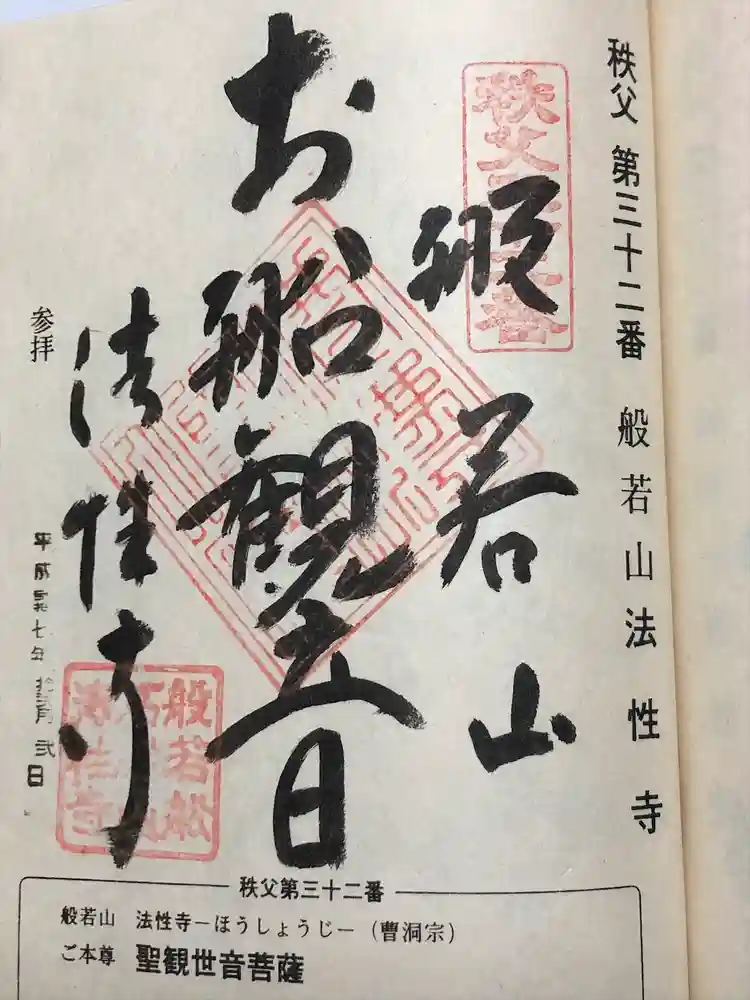 秩父 第三十二番 般若山法性寺
秩父三十二番
般若山
お船観音
法性寺
参拝
平成 七年 月弐日
秩父第三十二番
般若山 法性寺−ほうしょうじ−（曹洞宗）
ご本尊 聖観世音菩薩